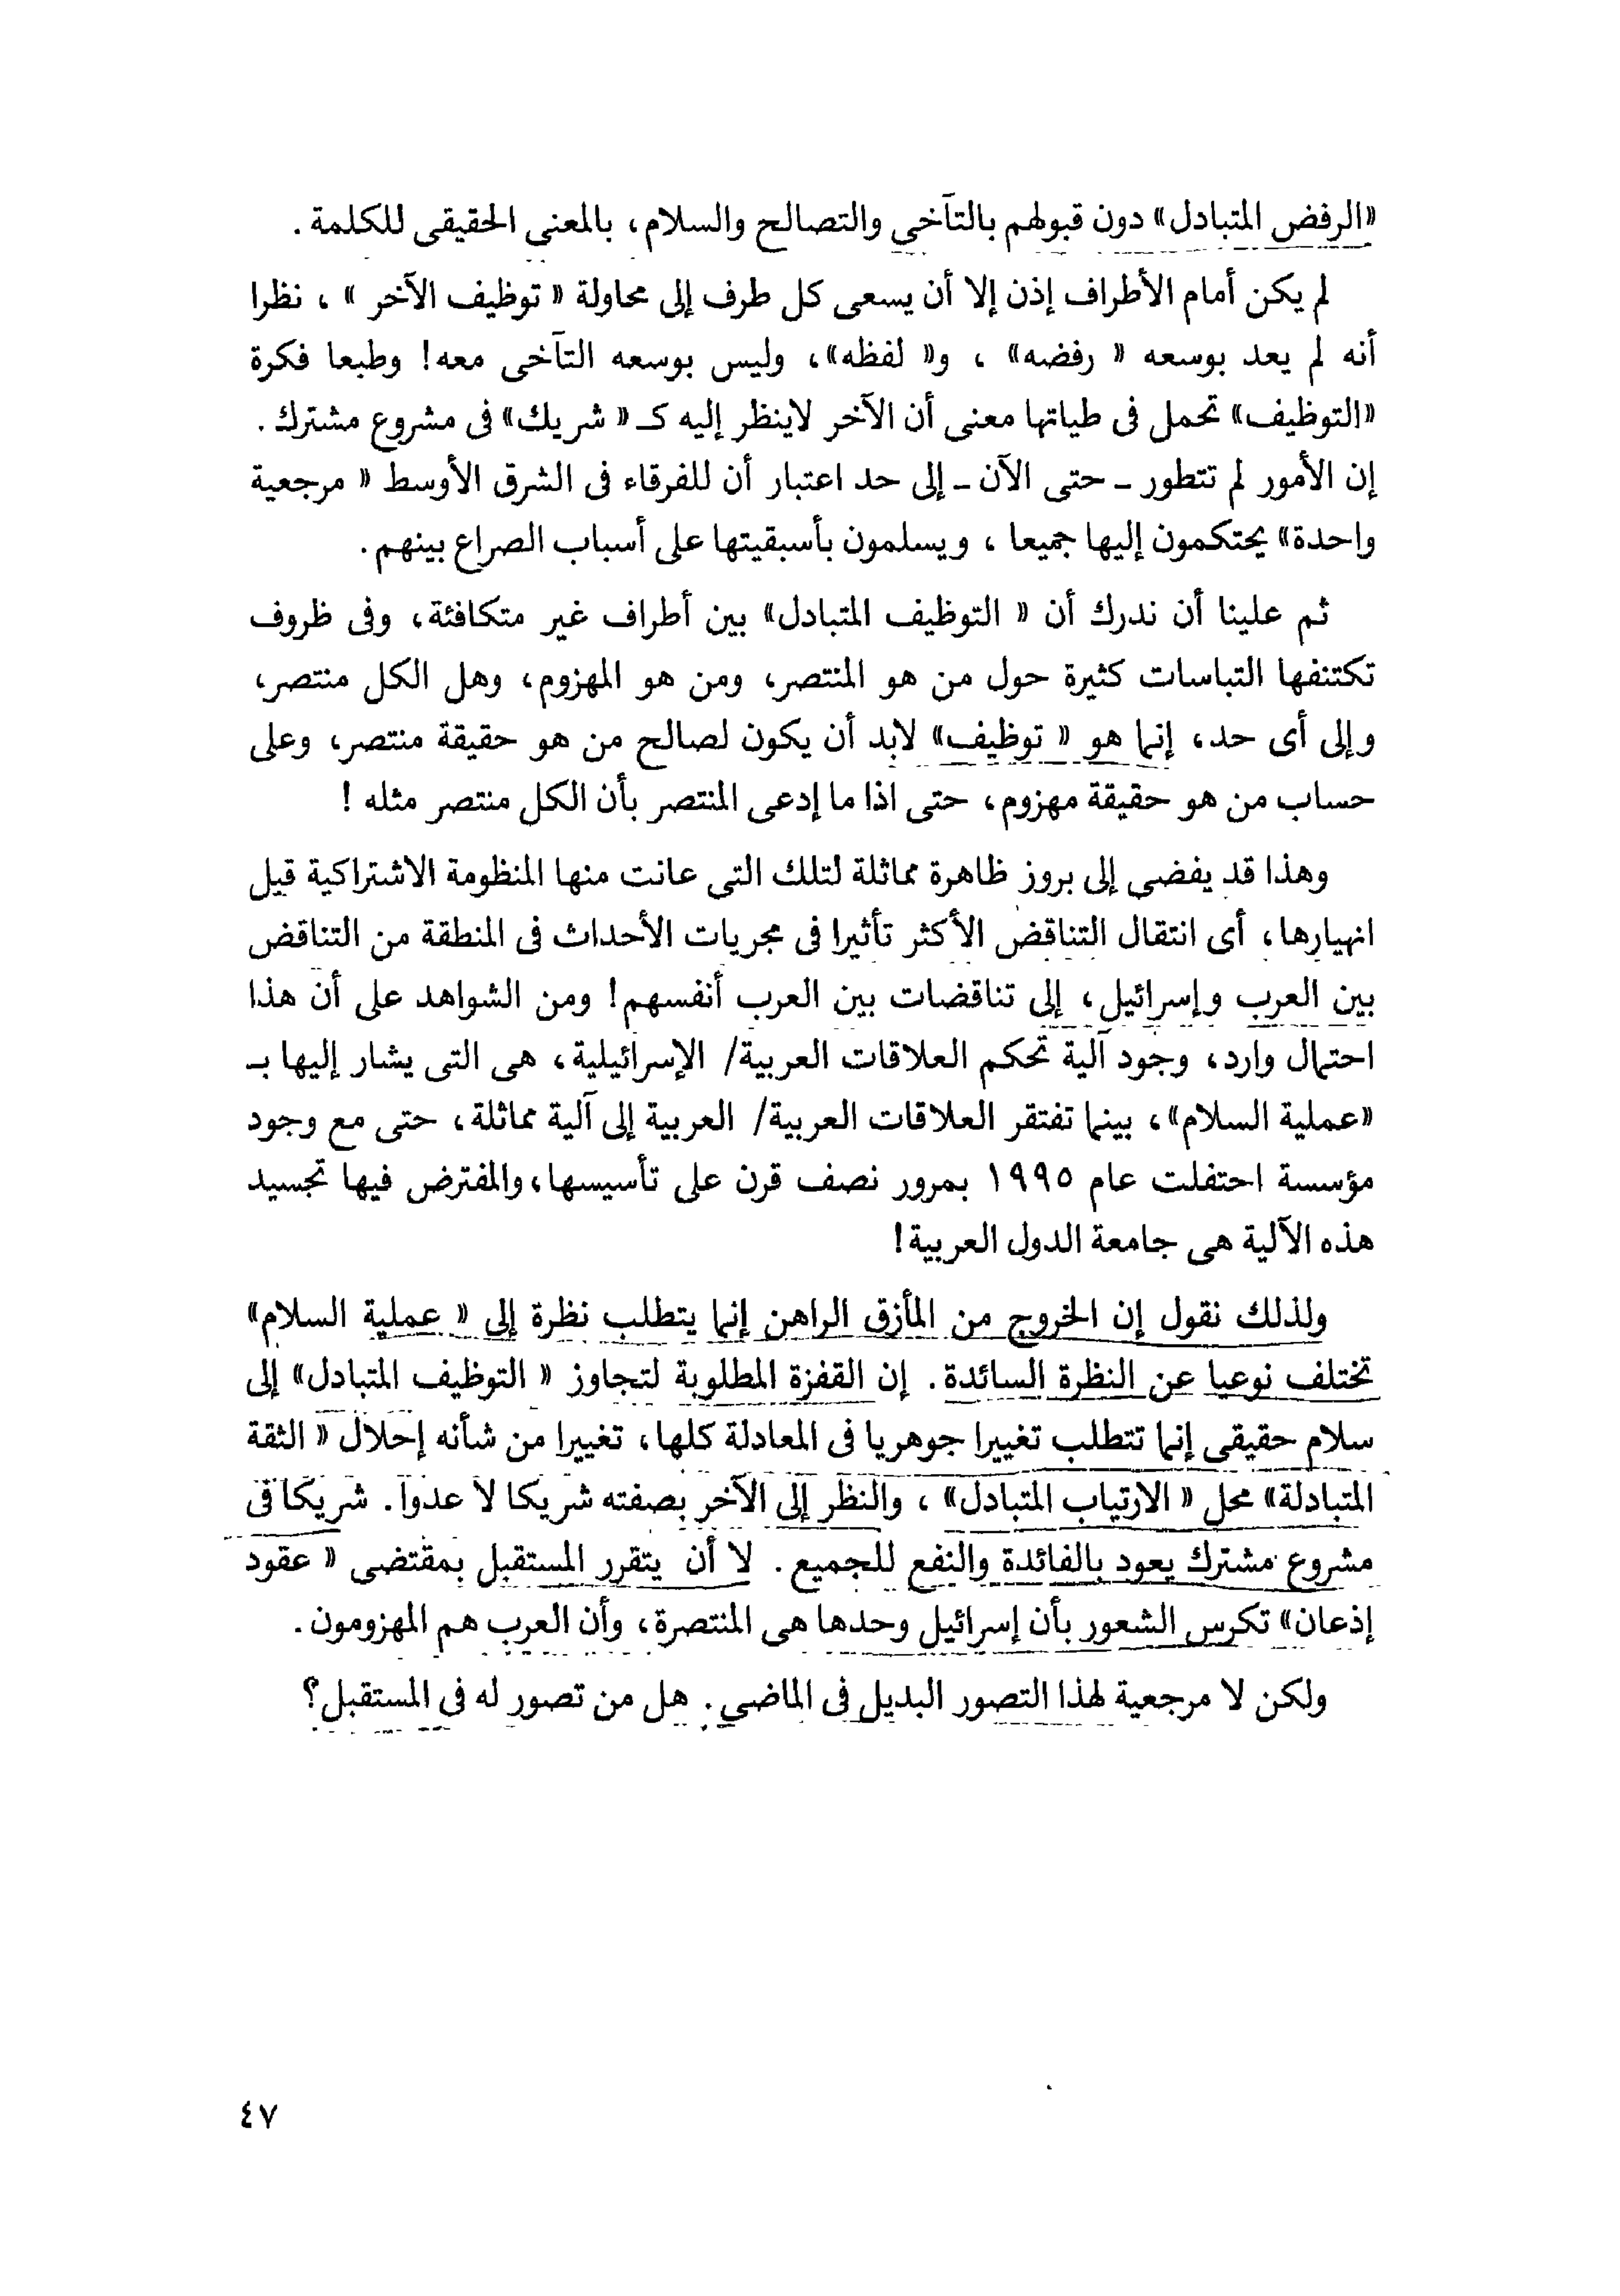 «الرفض المتبادل» دون قبولهم بالتآخى والتصالح والسلام، بالمعنى الحقيقى للكلمة .
لم يكن أمام الأطراف إذن إلا أن يسعى كل طرف إلى محاولة « توظيف الآخر » ، نظرا
أنه لم يعد بوسعه « رفضه» ، و« لفظه»، وليس بوسعه التآخى معه! وطبعا فكرة
«التوظيف» تحمل فى طياتها معنى أن الآخر لاينظر إليه كـ « شريك» فى مشروع مشترك .
إن الأمور لم تتطور ـ حتى الآن ـ إلى حد اعتبار أن للفرقاء فى الشرق الأوسط « مرجعية
واحدة» يحتكمون إليها جميعا ، ويسلمون بأسبقيتها على أسباب الصراع بينهم.
ثم علينا أن ندرك أن « التوظيف المتبادل» بين أطراف غير متكافئة، وفى ظروف
تكتنفها التباسات كثيرة حول من هو المنتصر، ومن هو المهزوم، وهل الكل منتصر،
وإلى أى حد، إنما هو « توظيف» لابد أن يكون لصالح من هو حقيقة منتصر، وعلى
حساب من هو حقيقة مهزوم، حتى اذا ما إدعى المنتصر بأن الكل منتصر مثله !
وهذا قد يفضى إلى بروز ظاهرة مماثلة لتلك التى عانت منها المنظومة الاشتراكية قبل
انهيارها، أى انتقال التناقض الأكثر تأثيرا فى مجريات الأحداث فى المنطقة من التناقض
بين العرب وإسرائيل، إلى تناقضات بين العرب أنفسهم! ومن الشواهد على أن هذا
احتمال وارد، وجود آلية تحكم العلاقات العربية/ الإسرائيلية، هى التى يشار إليها بـ
«عملية السلام»، بينما تفتقر العلاقات العربية/ العربية إلى آلية مماثلة، حتى مع وجود
مؤسسة احتفلت عام ١٩٩٥ بمرور نصف قرن على تأسيسها، والمفترض فيها تجسيد
هذه الآلية هى جامعة الدول العربية!
ولذلك نقول إن الخروج من المأزق الراهن إنما يتطلب نظرة إلى « عملية السلام»
تختلف نوعيا عن النظرة السائدة. إن القفزة المطلوبة لتجاوز « التوظيف المتبادل» إلى
سلام حقيقى إنما تتطلب تغييرا جوهريا فى المعادلة كلها، تغييرا من شأنه إحلال « الثقة
المتبادلة» محل « الارتياب المتبادل» ، والنظر إلى الآخر بصفته شريكا لا عدوا. شريكا فى
مشروع مشترك يعود بالفائدة والنفع للجميع. لا أن يتقرر المستقبل بمقتضى « عقود
إذعان» تكرس الشعور بأن إسرائيل وحدها هى المنتصرة، وأن العرب هم المهزومون.
ولكن لا مرجعية لهذا التصور البديل فى الماضى. هل من تصور له فى المستقبل؟
٤٧